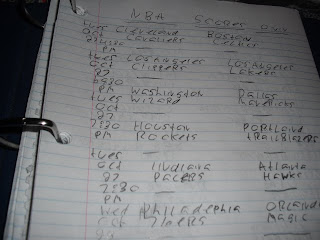 NBA SCORES
Tues Cleveland Boston
Oct Cavaliers Celtics
27
7:30
PM
tues Los Angeles Los Angeles
Oct Clippers Lakers
27
PM
tues Washington Dallas
Oct Wizard Mavericks
27
7:30 Houston Portlaind
PM Rockets trailBlazers
tues
Oct Indiana Atlanta
27 Pacers Hawks
7:30
PM
Wed Philadelphia Orlando
Oct 76ers Magic